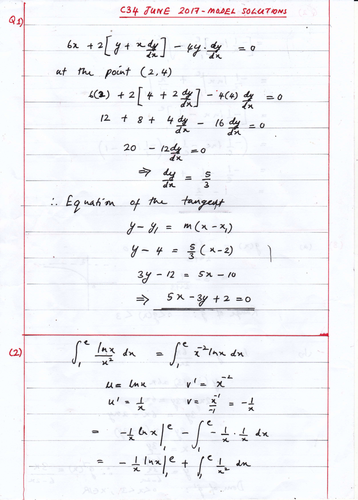 C34 JUNE 2017 - MODEL SOLUTIONS
Q1)
6x + 2[y + x dy/dx] - 4y. dy/dx = 0
at the point (2,4)
6(2) + 2[4 + 2 dy/dx] - 4(4) dy/dx = 0
12 + 8 + 4 dy/dx - 16 dy/dx = 0
20 - 12 dy/dx = 0
⇒ dy/dx = 5/3
∴ Equation of the tangent
y - y₁ = m(x - x₁)
y - 4 = 5/3 (x - 2)
3y - 12 = 5x - 10
⇒ 5x - 3y + 2 = 0
(2)
∫₁ᵉ lnx/x² dx = ∫₁ᵉ x⁻² lnx dx
u = lnx v' = x⁻²
u' = 1/x v = x⁻¹/-1 = -1/x
= -1/x lnx |₁ᵉ - ∫₁ᵉ -1/x . 1/x dx
= -1/x lnx |₁ᵉ + ∫₁ᵉ 1/x² dx